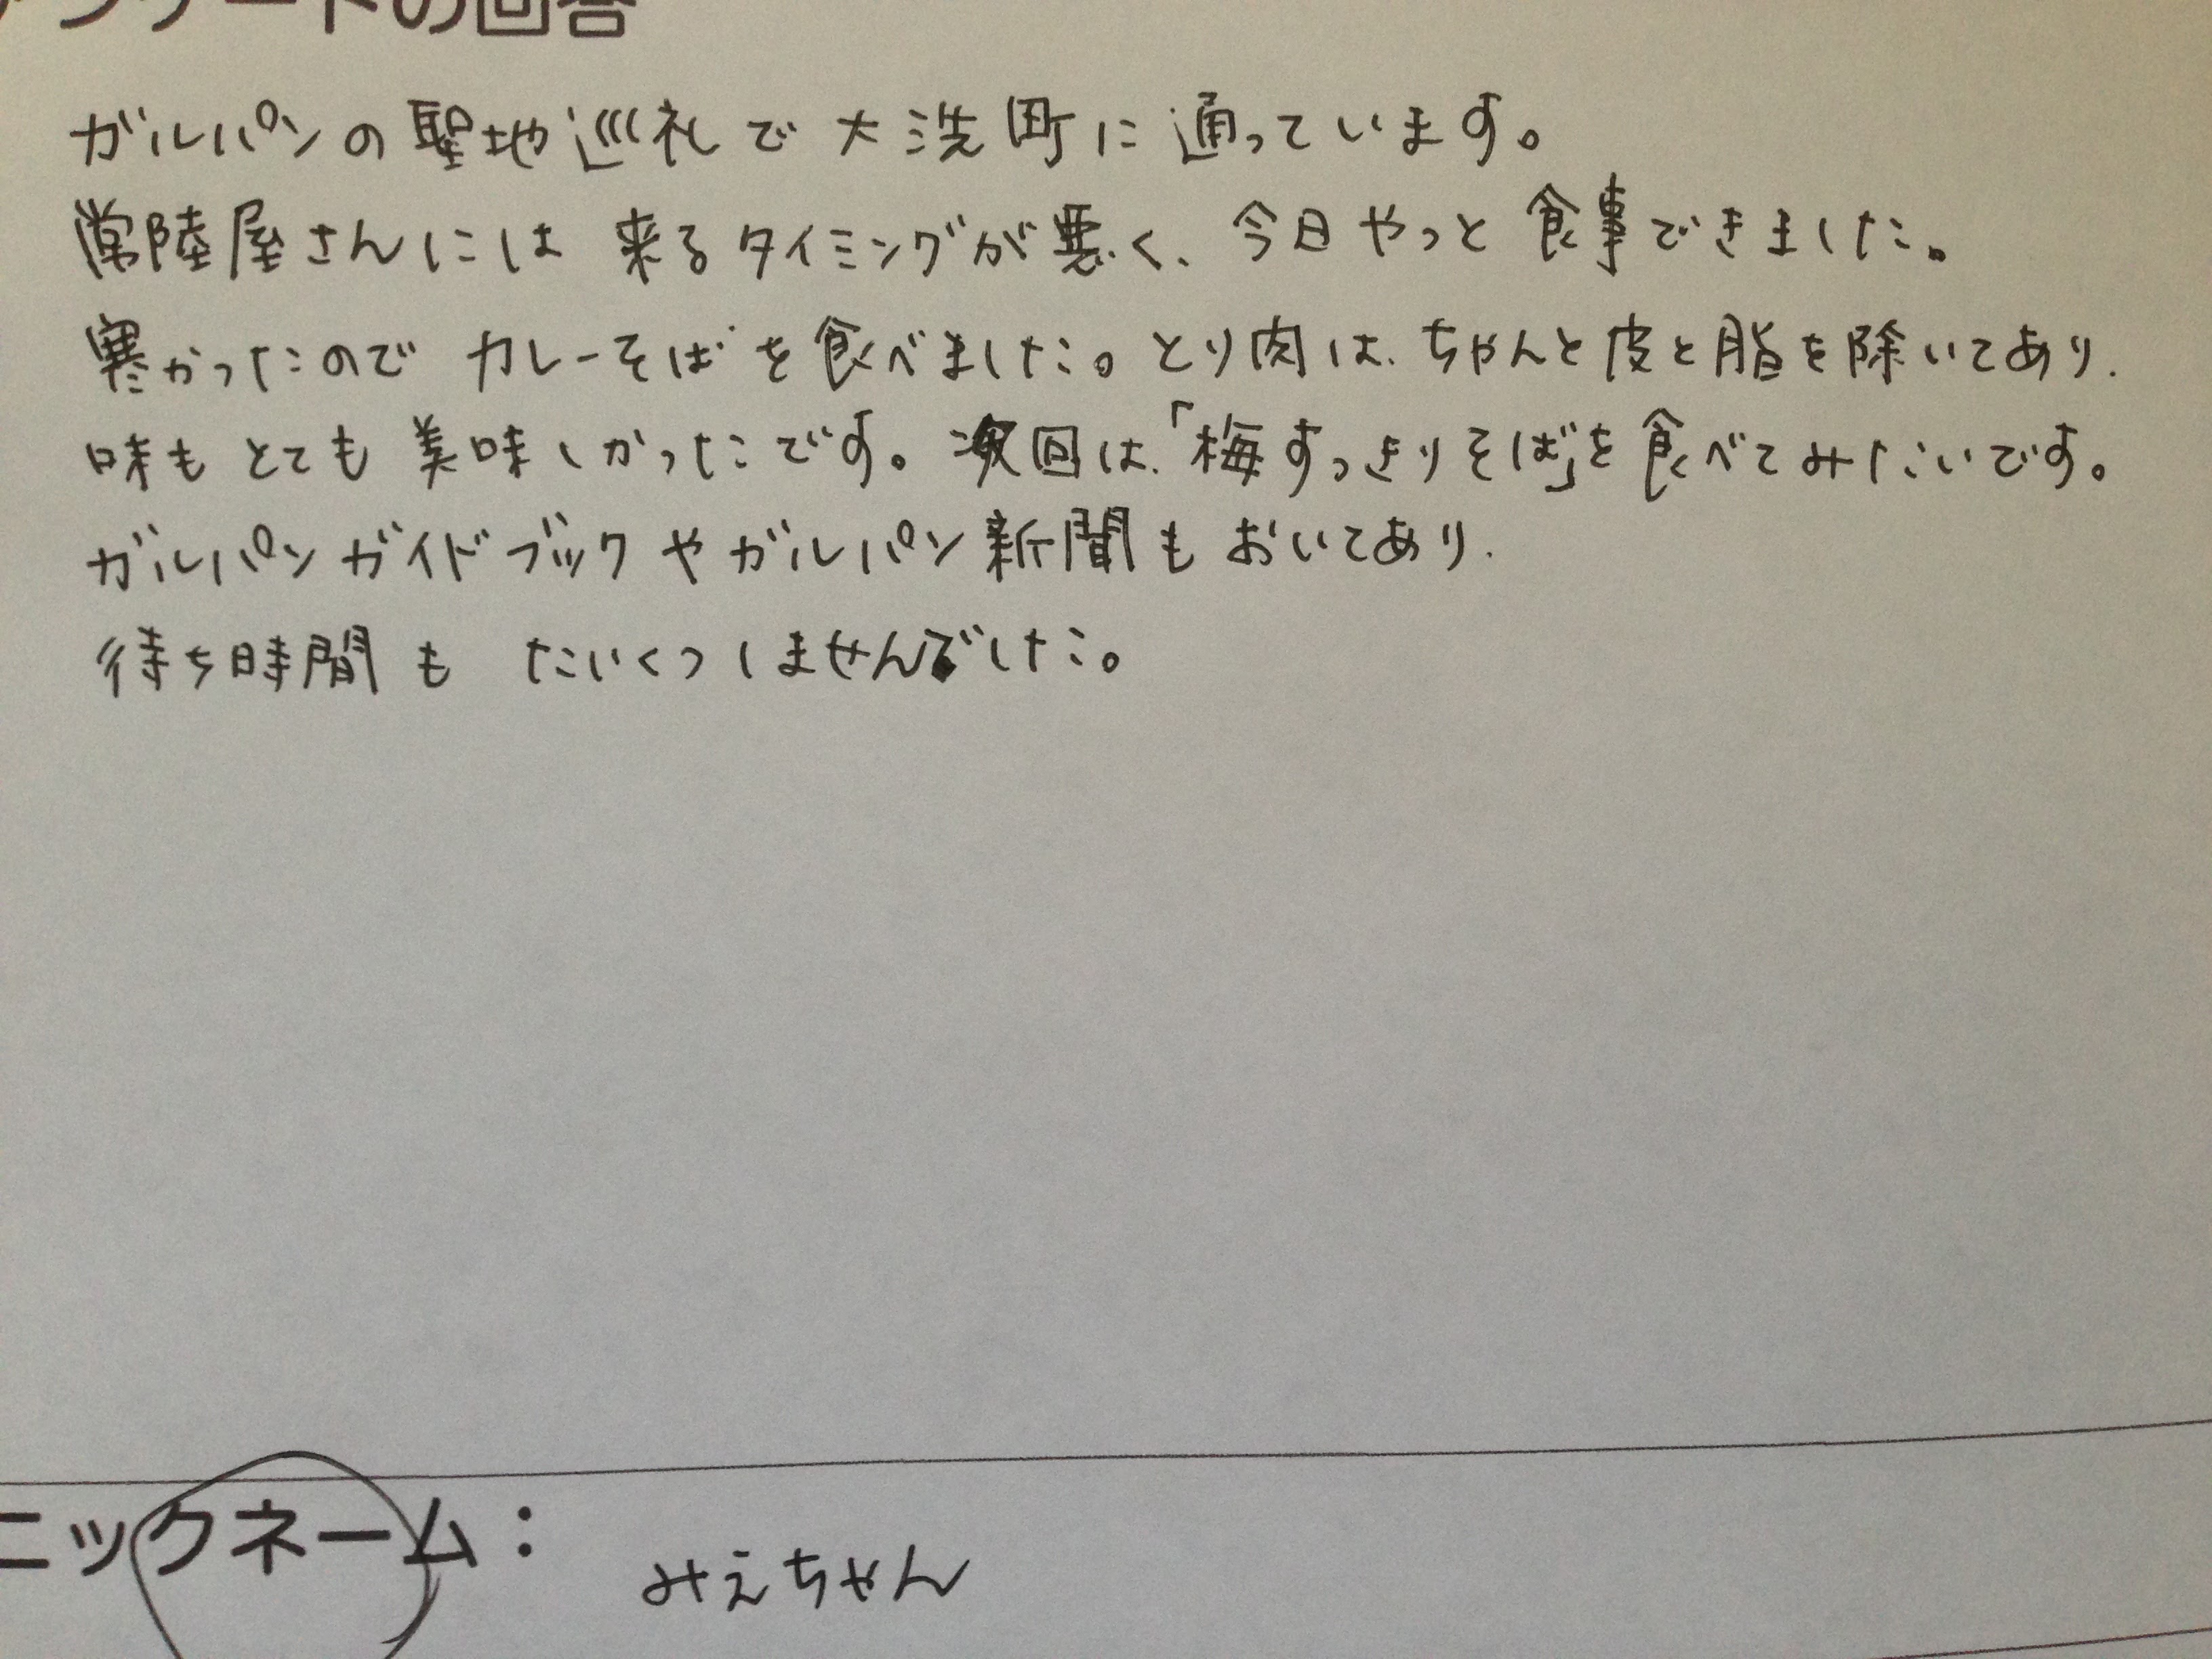 アンケートの回答
ガルパンの聖地巡礼で大洗町に通っています。
常陸屋さんには来るタイミングが悪く、今日やっと食事できました。
寒かったのでカレーそばを食べました。とり肉は、ちゃんと皮と脂を除いてあり、
味もとても美味しかったです。次回は、「梅すっきりそば」を食べてみたいです。
ガルパンガイドブックやガルパン新聞もおいてあり、
待ち時間も たいくつしませんでした。
ニックネーム： みえちゃん